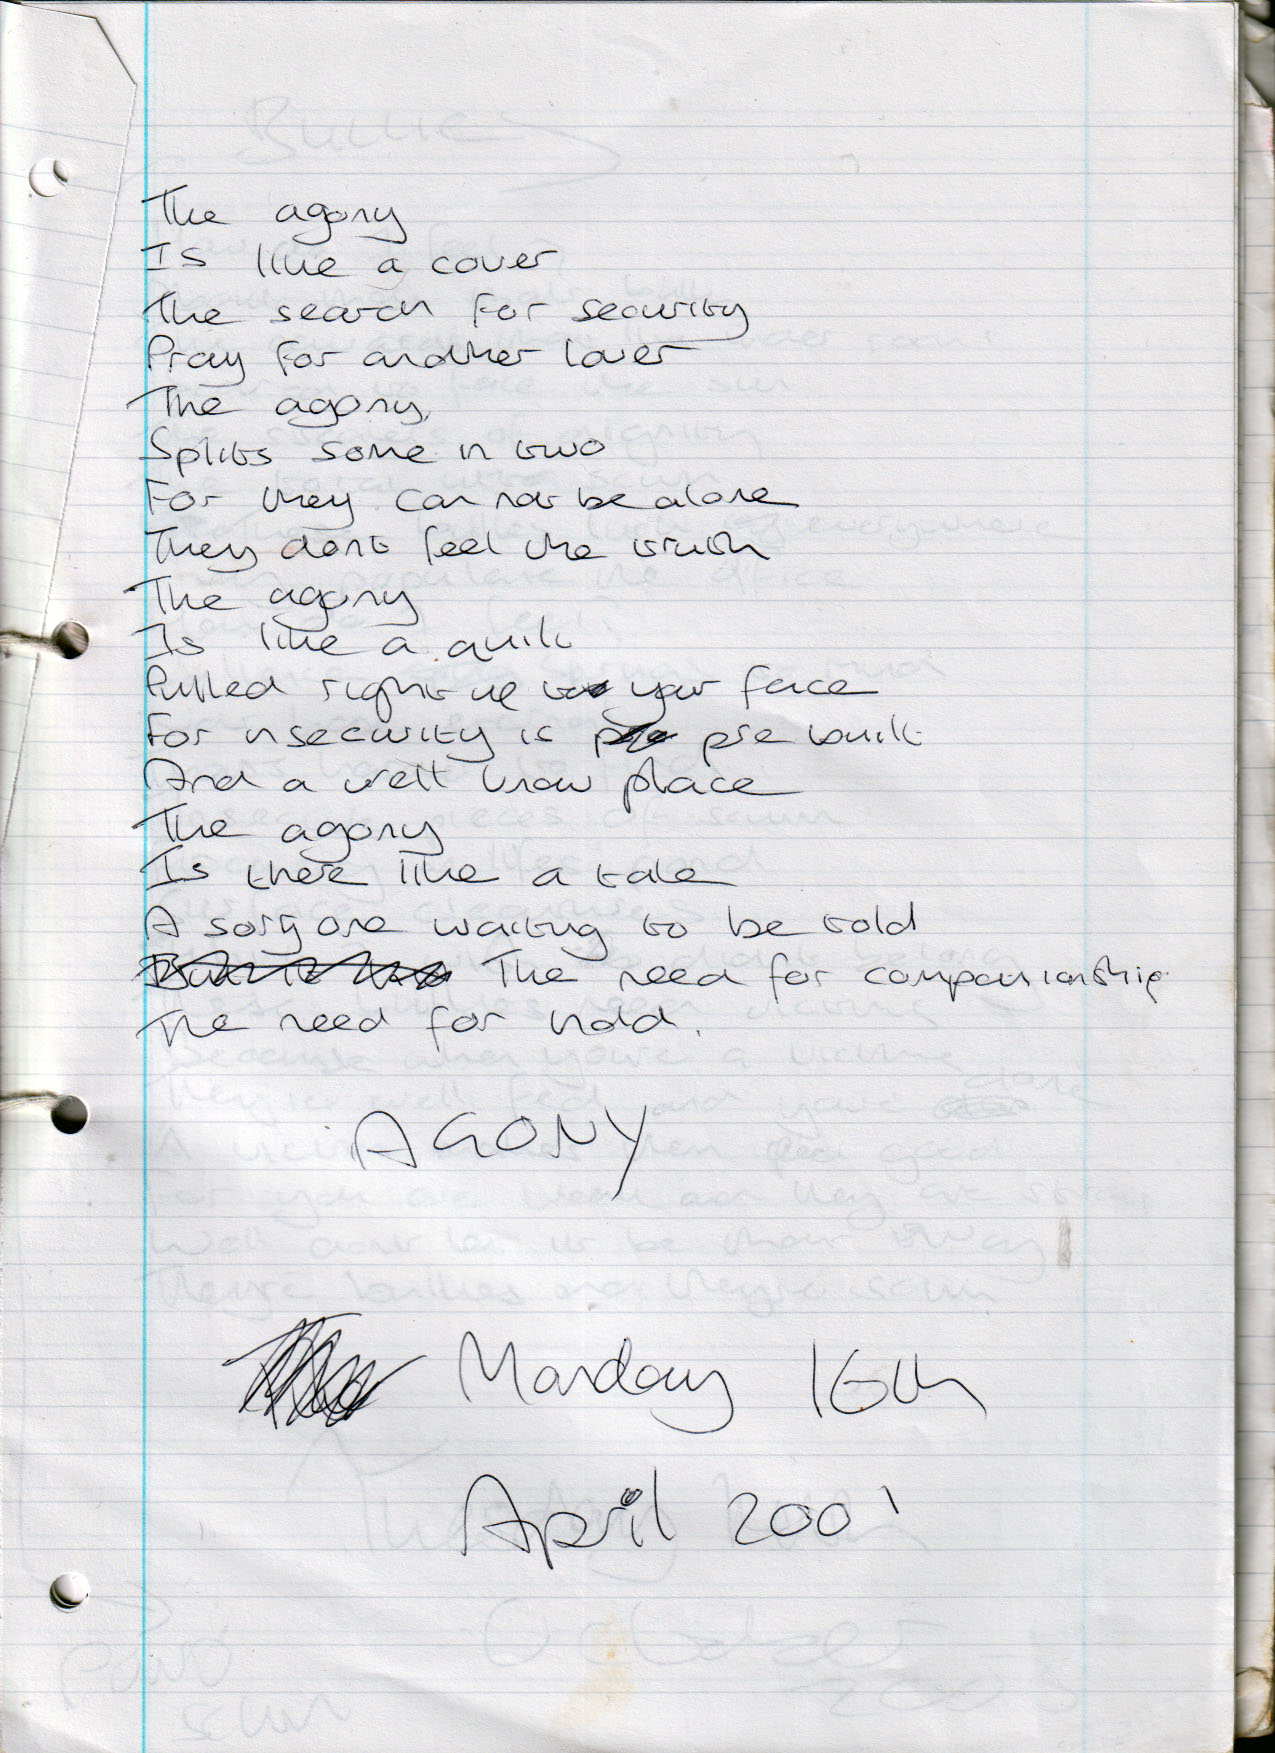 The agony
Is like a cover
The search for security
Pray for another lover
The agony,
Splits some in two
For they can not be alone
They dont feel the truth
The agony
Is like a quilt
Pulled right up to your face
For insecurity is pre built
And a well know place
The agony
Is there like a tale
A sorry one waiting to be told
The need for companionship
The need for hold.
AGONY
Monday 16th
April 2001